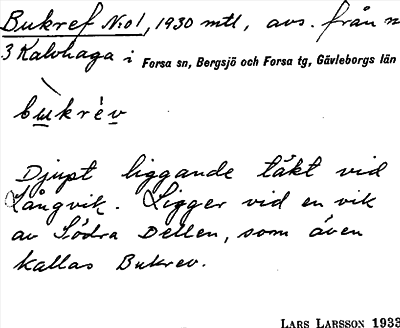 Bukref No1, 1930 mtl, avs. från n
3 Kalvhaga i Forsa sn, Bergsjö och Forsa tg, Gävleborgs län
bùkrèv
Djupt liggande täkt vid
Långvik. Ligger vid en vik
av Södra Dellen, som även
kallas Bukrev.
LARS LARSSON 1933